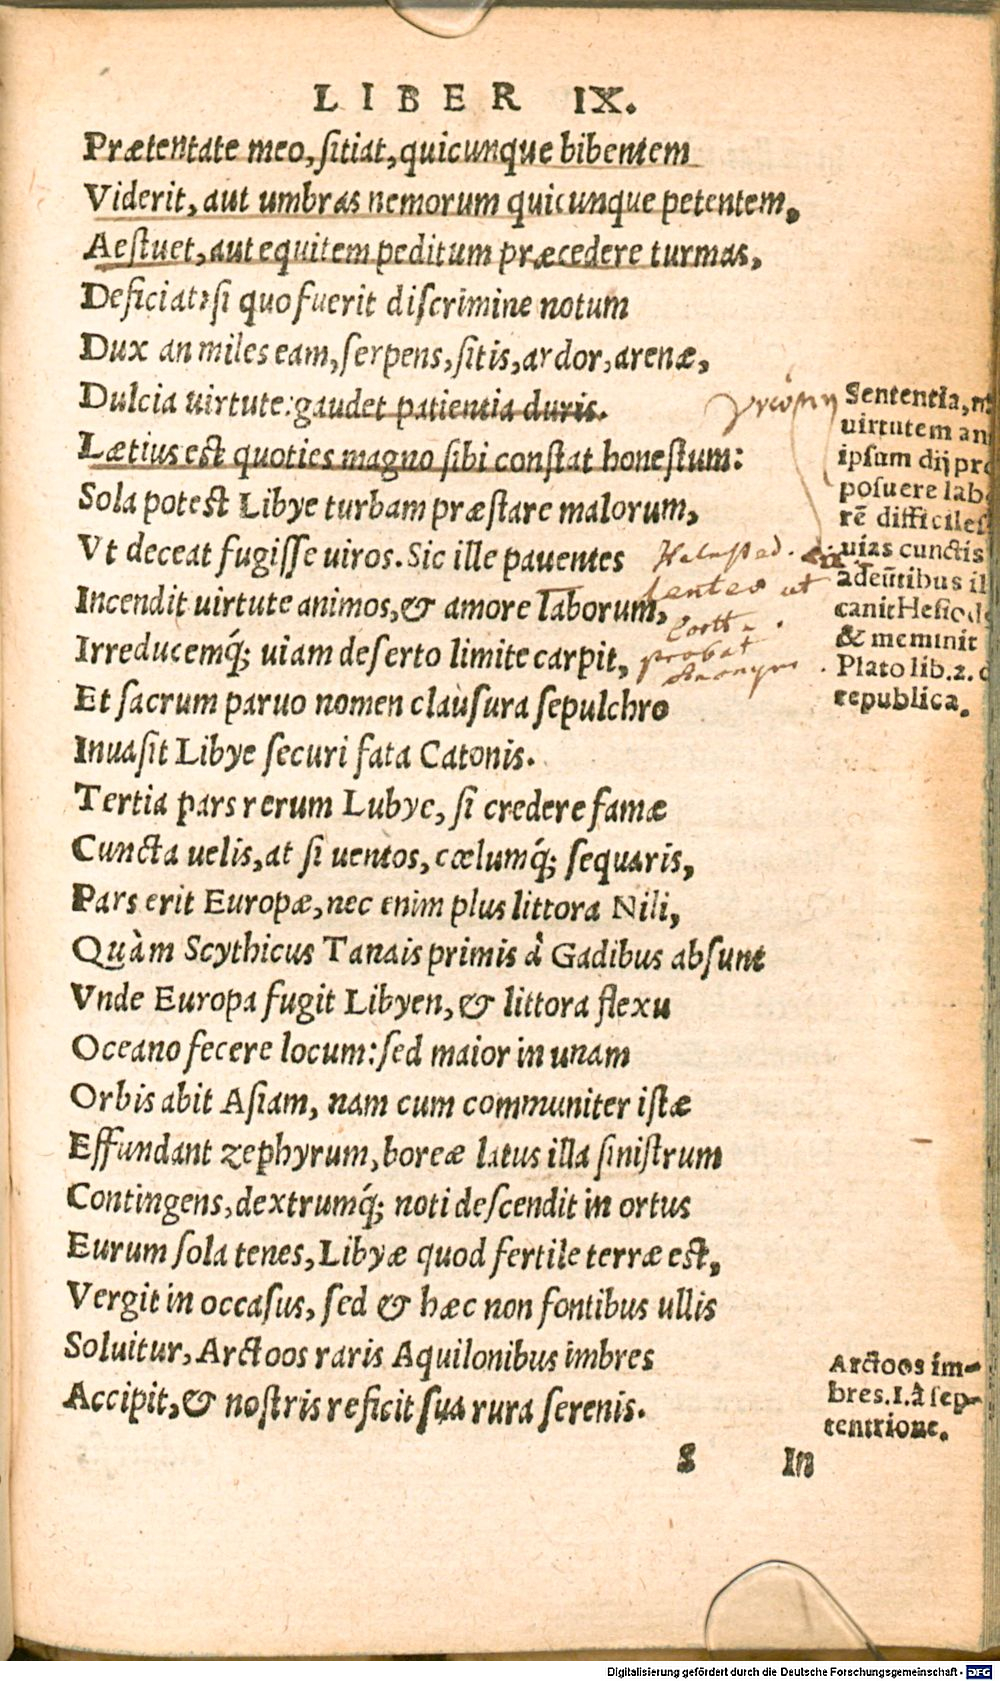 LIBER IX.
Prætentate meo, sitiat, quicunque bibentem
Viderit, aut umbras nemorum quicunque petentem,
Aestuet, aut equitem peditum præcedere turmas,
Deficiat: si quo fuerit discrimine notum
Dux an miles eam, serpens, sitis, ardor, arenæ,
Dulcia uirtute: gaudet patientia duris.
Lætius est quoties magno sibi constat honestum:
Sola potest Libye turbam præstare malorum,
Vt deceat fugisse uiros. Sic ille pauentes
Incendit uirtute animos, & amore laborum,
Irreducemq́; uiam deserto limite carpit,
Et sacrum paruo nomen clausura sepulchro
Inuasit Libye securi fata Catonis.
Tertia pars rerum Lubye, si credere famæ
Cuncta uelis, at si uentos, cœlumq́; sequaris,
Pars erit Europæ, nec enim plus littora Nili,
Quàm Scythicus Tanais primis à Gadibus absunt
Vnde Europa fugit Libyen, & littora flexu
Oceano fecere locum: sed maior in unam
Orbis abit Asiam, nam cum communiter istæ
Effundant zephyrum, boreæ latus illa sinistrum
Contingens, dextrumq́; noti descendit in ortus
Eurum sola tenes, Libyæ quod fertile terræ est,
Vergit in occasus, sed & hæc non fontibus ullis
Soluitur, Arctoos raris Aquilonibus imbres
Accipit, & nostris reficit sua rura serenis.
S In
Sententia,
uirtutem an
ipsam dij pro
posuere lab
rē difficiles
uias cunctis
adeūtibus il
canit Hesiod
& meminit
Plato lib. 2. d
republica.
ut
probat
Arctoos im-
bres. I. à sep-
tentrione.
Digitalisierung gefördert durch die Deutsche Forschungsgemeinschaft - DFG